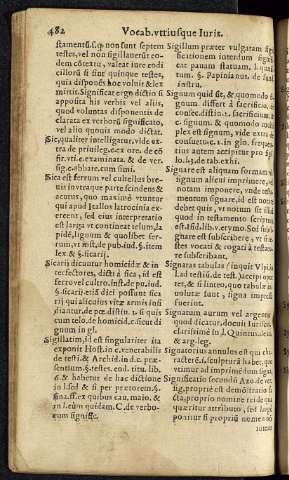 482 Vocab. vtriusque Iuris.
stamentū. s. q. non sunt septem
testes, vel non sigillauerūt eo-
dem cōtextu, valeat iure codi
cillorū si sint quinque testes,
quia disponēs hoc voluit & ex
mittit. Significat ergo dictio si
apposita his verbis vel aliis,
quod voluntas disponentis de
clarata ex verborū significatio,
vel alio quouis modo dictat.
Sic, qualiter intelligitur, vide ex
tra de priuileg. c. ex ore. & efi
fir. vt i. examinata. & de ver.
sig. c. abbate. cum simi.
Sica est ferrum vel cultellus bre-
uis in vtraque parte scindens &
acutus, quo maximè vtuntur
qui apud Italos latrocinia ex-
ercent, sed eius interpretatio
est larga vt contineat telum, la
pidē, lignum & quodlibet fer-
rum, vt inst. de pub. iud. §. item
lex & §. sicarij.
Sicarij dicuntur homicidæ & in
terfectores, dicti à sica, id est
ferro vel cultro. inst. de pu. iud.
§. sicarij. etiā dici possunt sica
rij qui alicuius vitæ armis insi
diantur. de pœ. distin. 1. §. quis
cum telo. de homicid. c. sicut di
gnum in gl.
Sigillatim, id est singulariter ita
exponit Host. in c. venerabilis
de testi. & Archid. in d. c. præ-
sentium. §. testes. end. titu. lib.
6. & habetur de hac dictione
in l. sed & si per prætorem. §.
fina. ff. ex quibus cau. maio. &
in l. cum quidam. C. de verbo-
rum signific.
Sigillum præter vulgatam sign
ficationem interdum signifi-
cat paruam statuam. l. quæsi-
tum. §. Papinianus. de fund.
instru.
Signum quid sit, & quomodo si
gnum differt à sacrificio, de
consec. distin. 2. sacrificium. &
c. signum. & quomodo multi-
plex est signum, vide extra de
consuetud. c. 1. in glo. frequen-
tius autem accipitur pro sigil
lo. l. 3. de tab. exhi.
Signare est aliquam formam vel
signum alicui imprimere, vel
notam imponere, vnde testa-
mentum signare, id est nota
sub ea describere, vt suum
quod in testamento scriptum
est. Isid. lib. v. etymo. Sed sole-
signare est subscribere, vt te-
stes vocati & rogati à testato-
re subscribant.
Signatas tabulas / inquit Vlpia.
l. ad testiū. de test. / accipi oportet
ter, & si linteo, quo tabulæ in
uolutæ sunt, signa impressa
fuerint.
Signatum aurum vel argentum
quod dicatur, docuit Iurisco.
clarissimè in l. Quintus. de auro
& arg. leg.
Signatorius annulus est qui cha-
racterē s. i. sculpturā habet, quo
vtimur ad imprimendū signa.
Significatio secundū Azo. de ver.
sig. propriè est demōstratio fa
cta, pro proprio nomine rei de qua
quæritur attributo, sed large
ponitur si proprio nomine nō